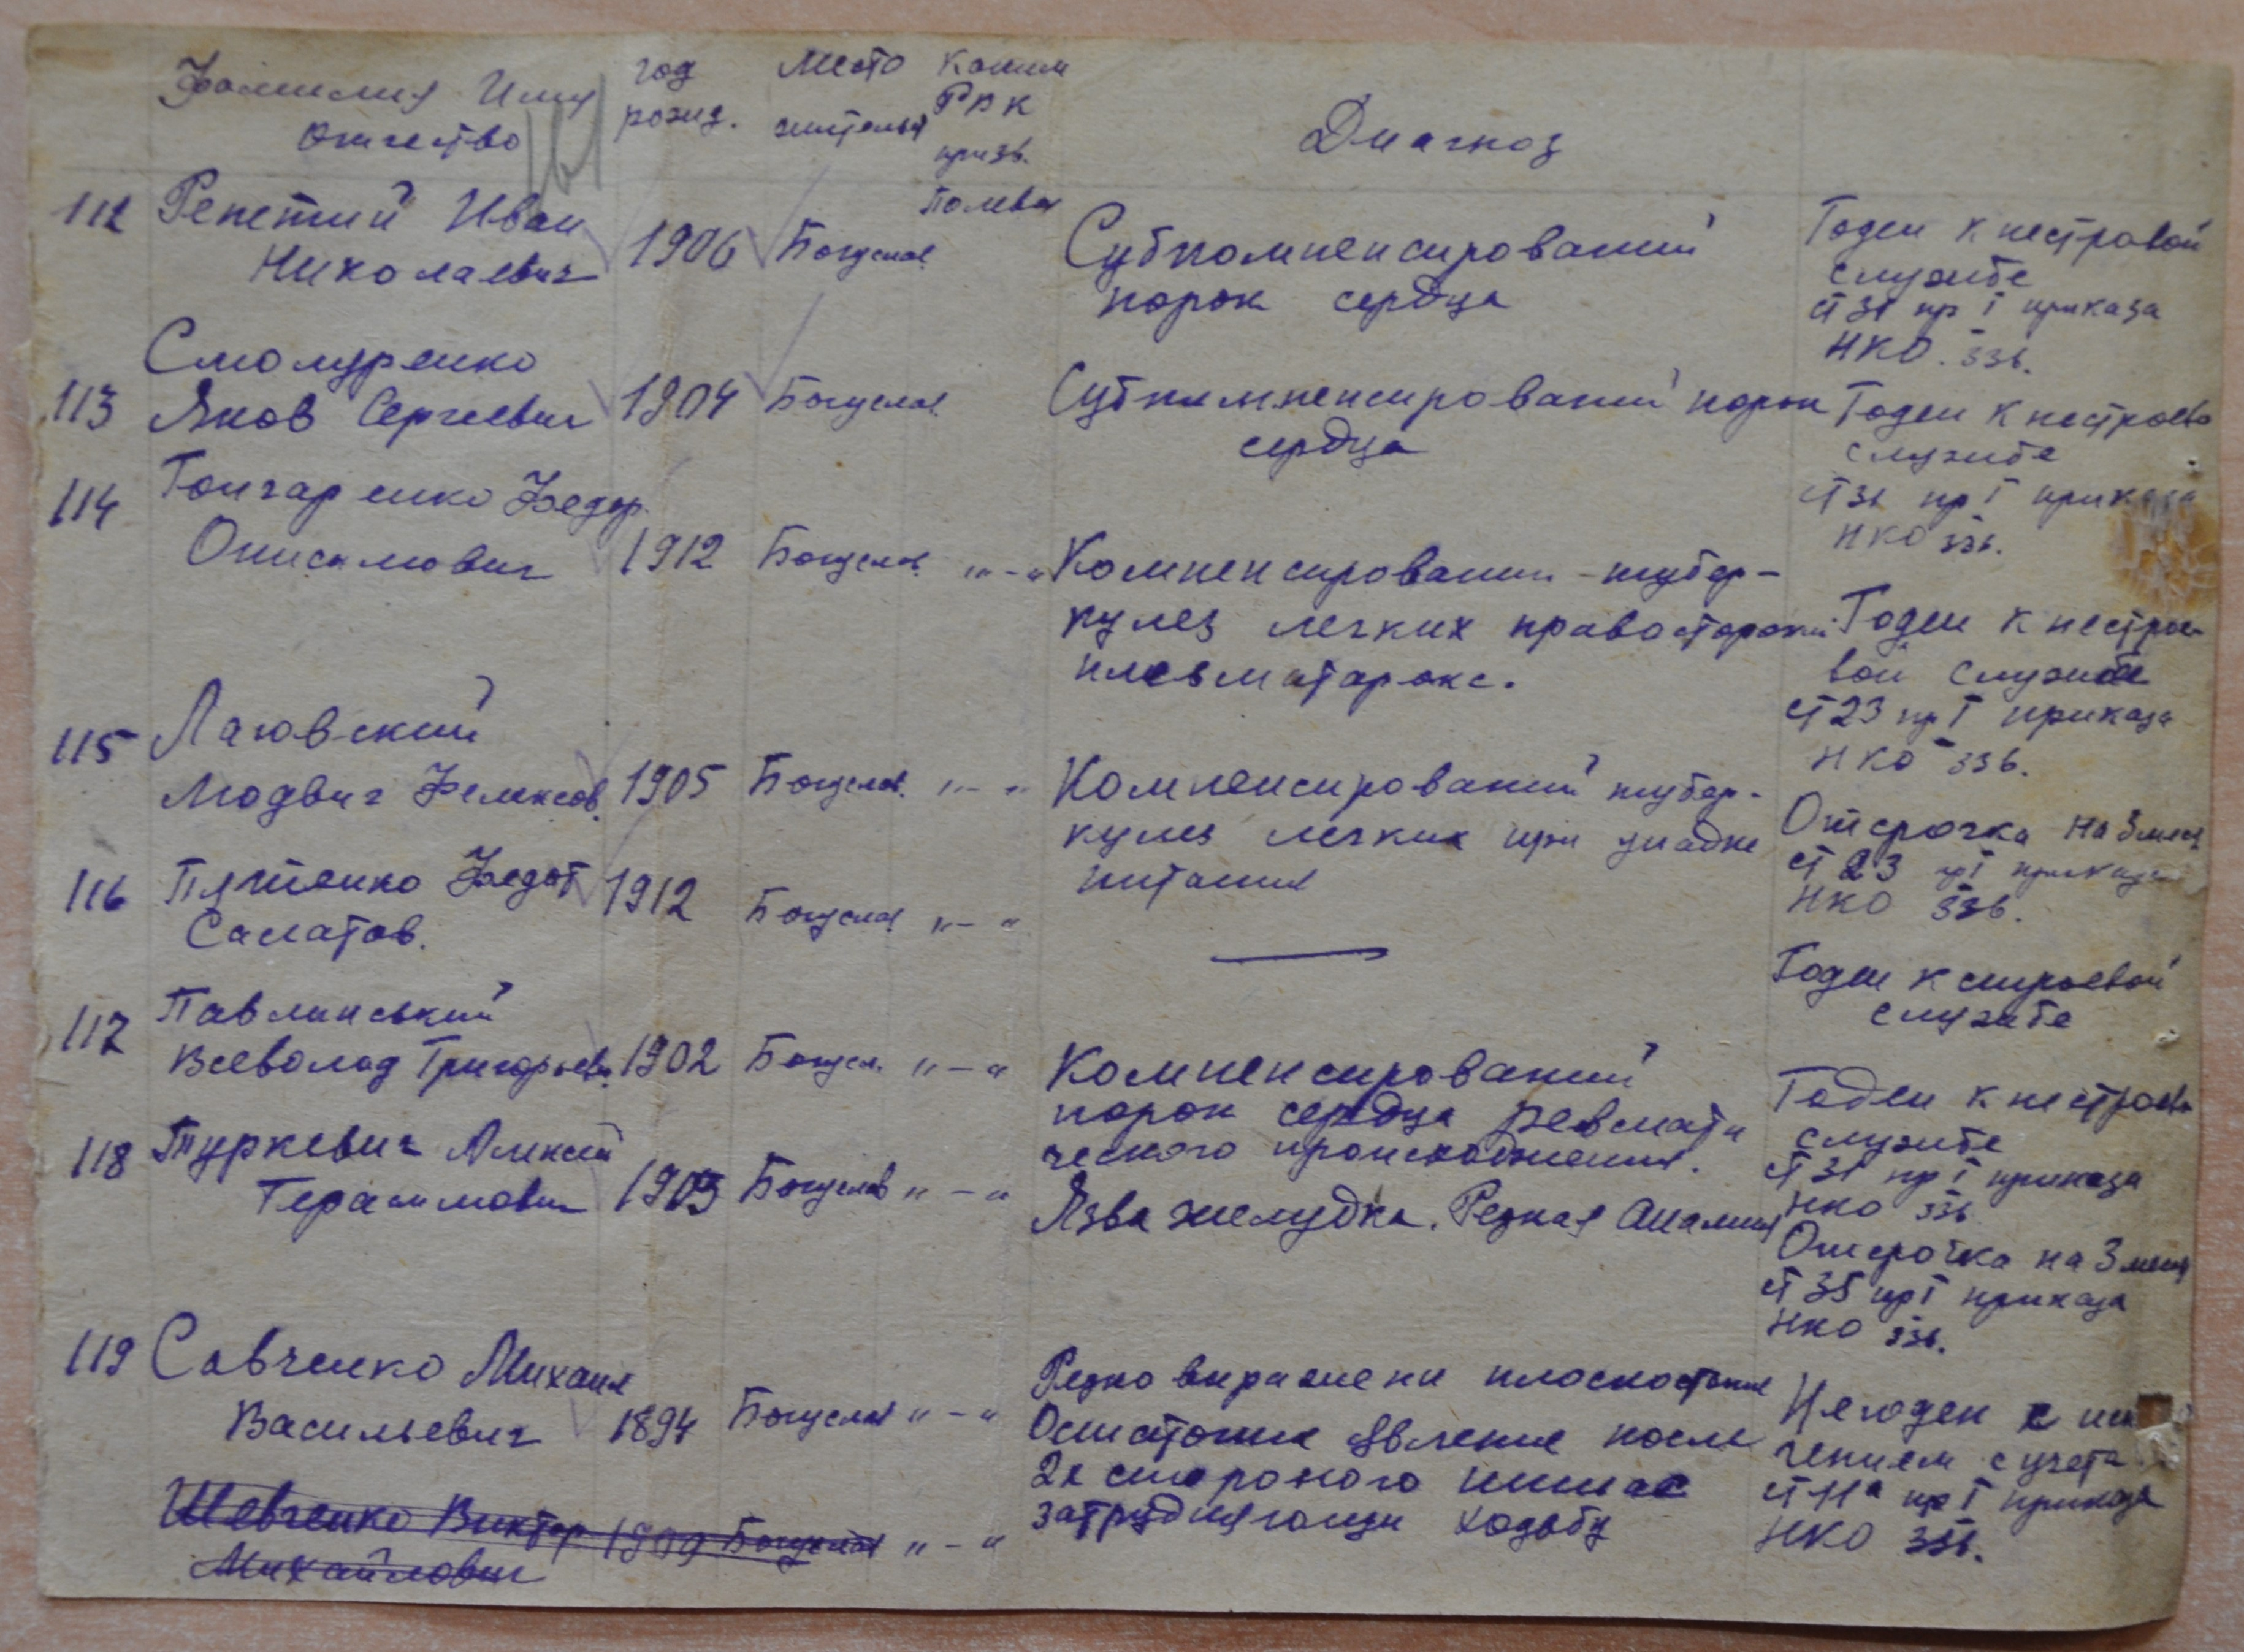 Фамилия Имя
отчество
год
рожд.
место
жительс
каким
РВК
призв.
Диагноз
Полевая
112 Репетий Иван
Николаевич
1906 Богуслав.
Субкомпенсирований
порок сердца
Годен к нестровой
службе
ст 31 пр I приказа
НКО 336.
Смолуренко
113 Яков Сергеевич
1904 Богуслав.
Субкомпенсирований порок
сердца
Годен к нестроево
службе
ст 31 пр I приказа
НКО 336.
114 Гончаренко Федор
Онисимович
1912 Богуслав. "-"
Компенсировании - тубер-
кулез легких правосторонии
плевматаракс.
Годен к нестрое-
вой службе
ст 23 пр I приказа
НКО 336.
115 Лаговский
Людвиг Феликсов.
1905 Богуслав. "-"
Компенсированый тубер-
кулез легких при упадке
питания
Отсрочка на 3 меся
ст 23 пр I приказа
НКО 336.
116 Пятенко Федот
Салатов.
1912 Богуслав "-"
—
Годен к строевой
службе
117 Павлинський
Всеволод Григорьев.
1902 Богусл. "-"
Компенсирований
порок сердца ревмати
ческого происхождения.
Годен к нестроево
службе
ст 31 пр I приказа
НКО 336
118 Туркевич Алексей
Герасимович
1905 Богуслав "-"
Язва желудка. Резкая Анамия
Отсрочка на 3 месяц
ст 35 пр I приказа
НКО 336.
119 Савченко Михаил
Васильевич
1894 Богуслав "-"
Резко виражени плоскостопие
Осмотоние явление после
2х стороного ишиас
затрудняющи ходьбу
Негоден с
чением с учета
ст 11а пр I приказа
НКО 336.
Шевченко Виктор
Михайлович
1909 Богуслав "-"